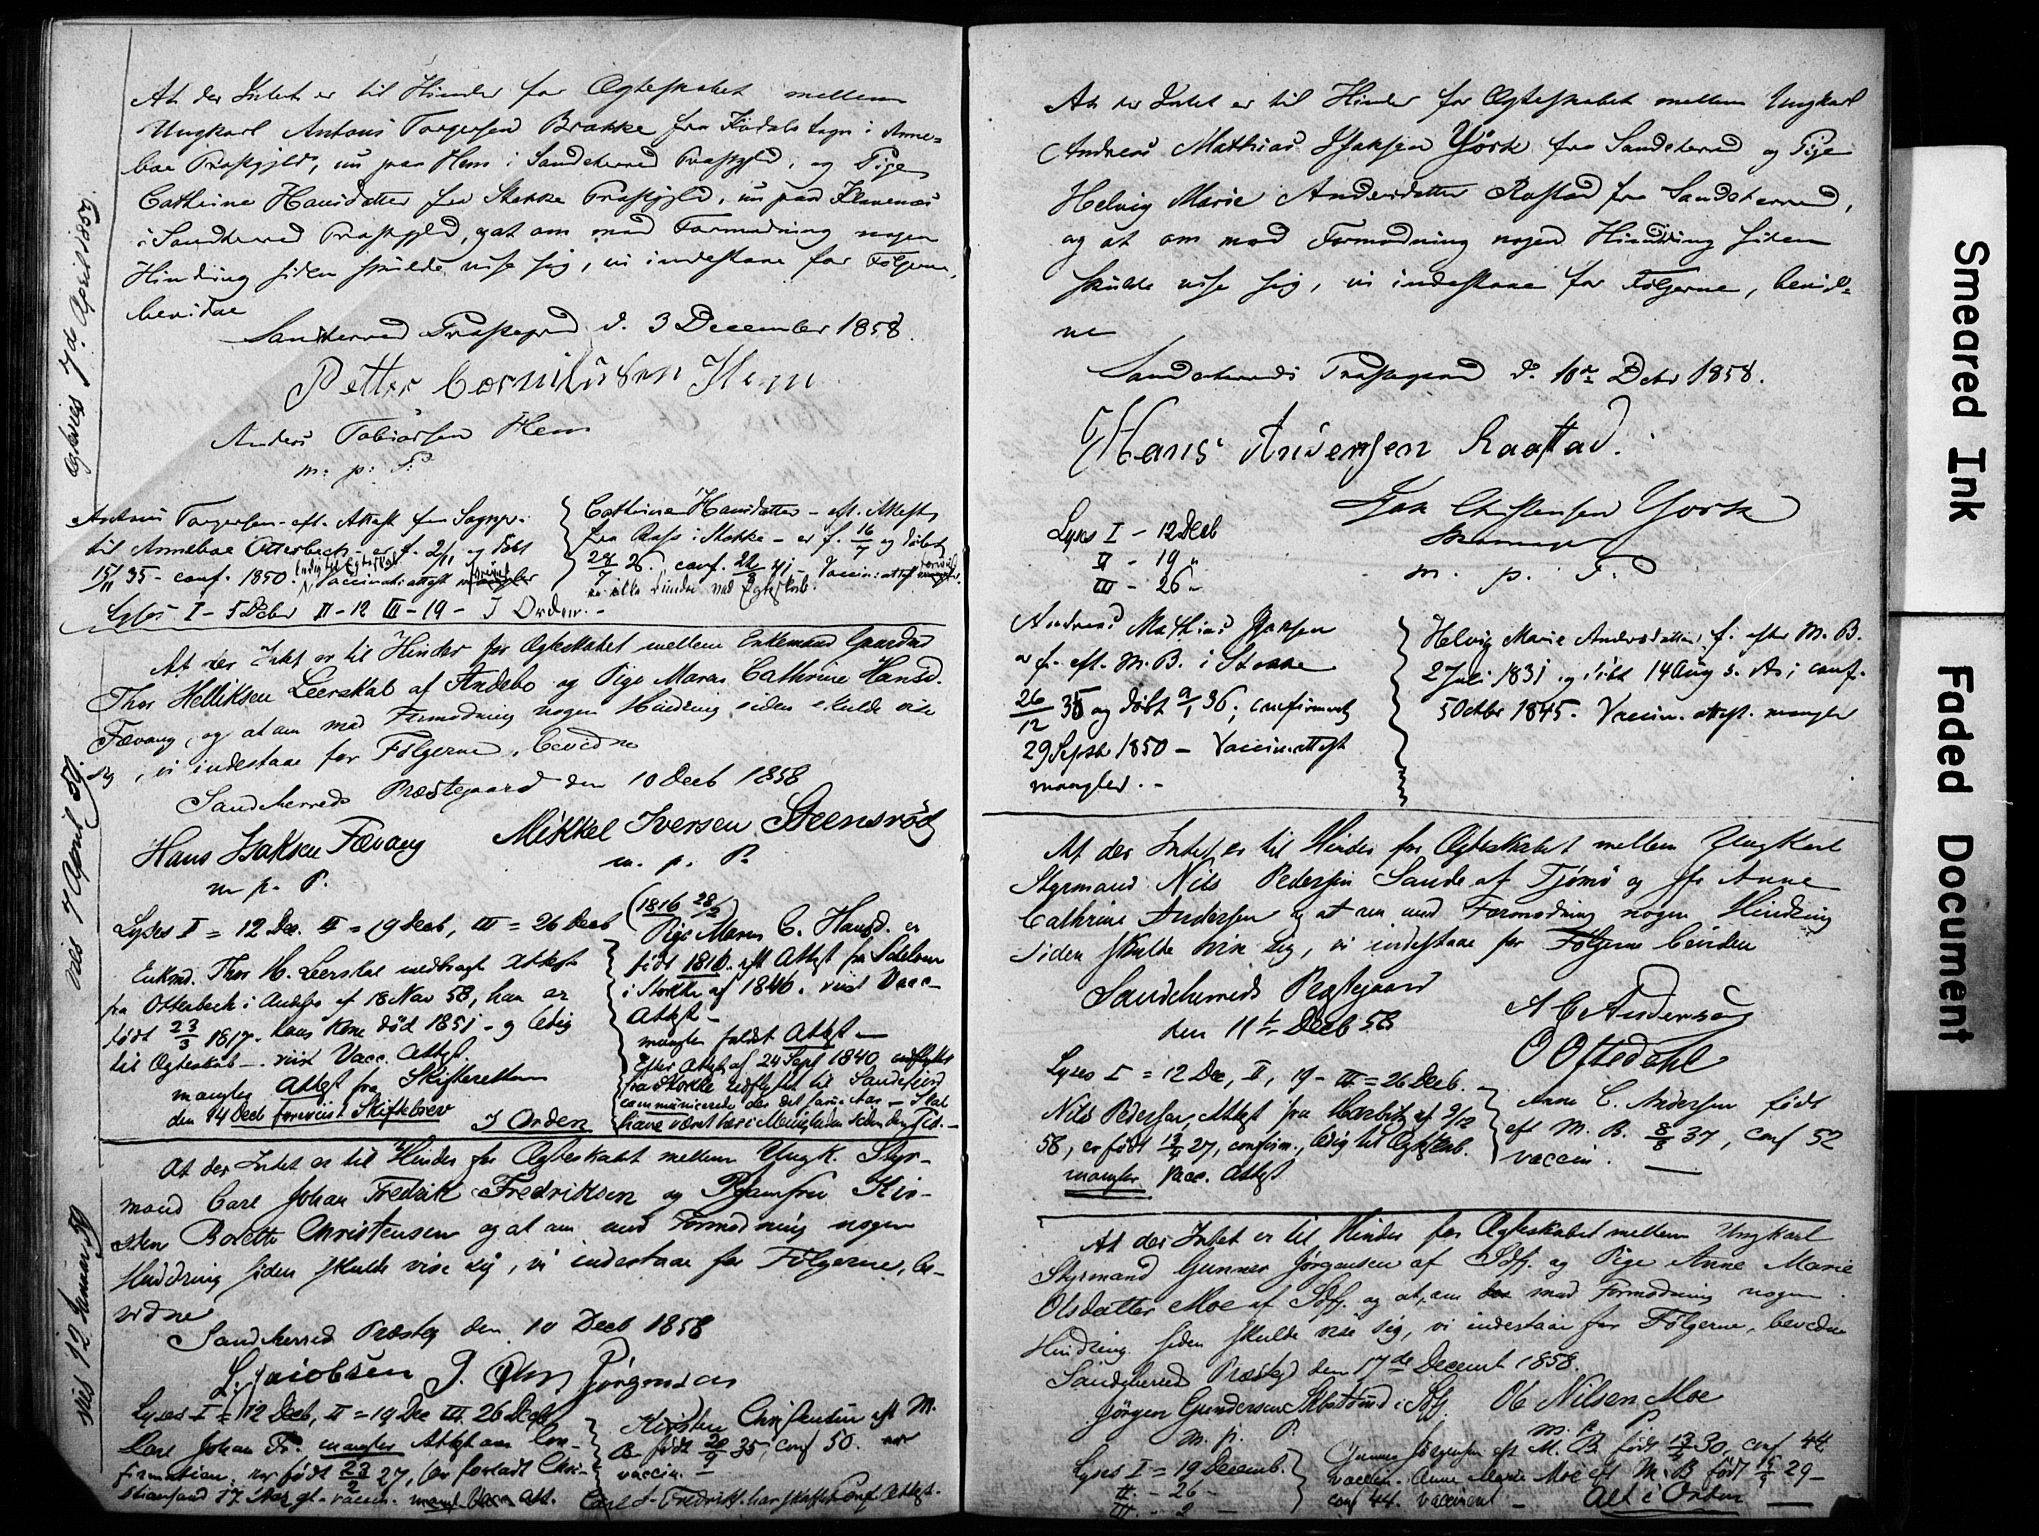 At der Intet er til Hinder for Ægteskabet mellem
Ungkarl Antons Torgersen Brække fra Kodals Sogn i Anne-
boe Præstegjeld, nu paa Hem i Sandeherred Præstgjeld, og Pige
Cathrine Hansdatter fra Stokke Præstgjeld, nu paa
i Sandeherred Præstgjeld, og at om mod Formodning nogen
Hindring siden skulde vise sig, vi indestaae for Følgerne,
bevidne
Sandeherred Præstegaard d. 3 December 1858.
Petter Cornilusen Hem
Anders Tobiassen Hem
m: p: P:
Ægtevies 7de April 1859.
Antons Torgersen - eft. Attest fra Sognepr.
til Anneboe Otterbech - er f. 2/11 og døbt
15/11 35 - conf. 1850. ledig til Ægteskab Vaccinatiattest mangler
Lyses I - 5 Debr II - 12 III - 19 - I Orden -
Cathrine Hansdatter - eft. Attest
fra Rafs i Stokke - er f. 16/7 og døbt
24/7 26. conf. 22/8 41 - Vaccin: attest mangler.
er ikke hindret med Ægteskab.
At der Intet er til Hinder for Ægteskabet mellem Enkemand Gaardmd
Thor Helliksen Leerskal af Andebo og Pige Maren Cathrine Hansd.
Fævang, og at om mod Formodning nogen Hindring siden skulde vise
sig, vi indestaae for Følgerne, bevidne
Sandeherreds Præstegaard den 10 Decb 1858
Hans Isaksen Fævang Mikkel Iversen Steensrød
m. p. P. m. p. P.
viet 7 April 59.
Lyses I = 12 Dec. II = 19 Decb, III = 26 Decb
Enkmd. Thor H. Leerskal medbragt Attest
fra Otterbech i Andebo af 18 Nov 58, han er
født 23/3 1817. hans Kone død 1851 - og ledig
til Ægteskab - viist Vacc. Attest.
mangler Attest fra Skifteretten
den 14 Decb foreviist Skiftebrev I Orden
(1816 28/2)
Pige Maren C. Hansd. er
født 1816. eft Attest fra
i Stokke af 1846. viist Vacc-
Attest -
mangler Attest -
Efter Attest af 24 Sept 1840
fra Stokke udflyttet til Sandefjord
communicerede der det samme Aar - Skal
have været her i Menigheden siden den Tid. -
At der Intet er til Hinder for Ægteskabet mellem Ungk. Styr-
mand Carl Johan Fredrik Fredriksen og Pige Jomfru Kir-
sten Bolette Christensen og at om mod Formodning nogen
Hindring siden skulde vise sig, vi indestaae for Følgerne, be-
vidne
Sandeherred Præsteg den 10 Decb 1858
L. Jacobsen J. Jörgensen
viet 12 Januar 59
Lyses I = 12 Decb, II = 19 Dec III. 26 Decb
Carl Johan Fr. mangler Attest om Con-
firmation. er født 23/2 27, forladt Chri-
stiansand 17 Aar gl. - vaccin. mangl Vacc Att.
Kirsten Christensen eft M.
B. født 20/9 35, conf 50.
vaccin. -
Carl J. Fredriks. har skaffet Conf Attest -
At der Intet er til Hinder for Ægteskabet mellem Ungkarl
Andreas Mathias Isaksen York fra Sandeherred og Pige
Helvig Marie Andersdatter Rastad fra Sandeherred,
og at om mod Formodning nogen Hindring siden
skulde vise sig, vi indestaae for Følgerne, bevid-
ne
Sandeherreds Præstegaard d. 10de Decbr 1858.
Hans Andersen Raastad.
Isak Christensen York
m. p. P.
Lyses I - 12 Decb
II - 19 "
III - 26 -
Andreas Mathias Isaksen
er f. eft. M. B. i Stokke
26/12 35 og døbt 9/1 36; confirmeret
29 Septbr 1850 - Vaccin. attest
mangler. -
Helvig Marie Andersdatter, f. efter M. B.
2 Juli 1831 og døbt 14 Aug s. A; conf.
5 Octbr 1845. Vaccin. attest. mangler
At der Intet er til Hinder for Ægteskabet mellem Ungkarl
Styrmand Nils Pedersen Sande af Tjömö og Jfr Anne
Cathrine Andersen og at om mod Formodning nogen Hindring
siden skulde vise sig, vi indestaae for Følgerne bevidne
Sandeherreds Præstegaard
den 11te Decb 58
A C Andersen
O Ottedahl
Lyses I = 12 Dec, II, 19 - III = 26 Decb.
Nils Pedersen, Attest fra af 9/12
58, er født 19/5 27, confirm., ledig til Ægteskab.
mangler Vacc. Attest
Anne C. Andersen født
eft M. B. 8/8 37, conf 52
vaccin. -
At der Intet er til Hinder for Ægteskabet mellem Ungkarl
Styrmand Gunner Jørgensen af Sdfj. og Pige Anne Marie
Olsdatter Moe af Sdfj. og at, om mod Formodning nogen
Hindring siden skulde vise sig, vi indestaae for Følgerne, bevidne
Sandeherred Præsteg den 17de December 1858.
Jörgen Gundersen i Sdfj. Ole Nilsen Moe
m. p. P. m. p. P.
Lyses I = 19 Decemb.
II - 26 -
III - 2 -
Gunner Jørgensen eft M. B født 13/7 30, conf 44.
vaccin. Anne Marie Moe eft M. B født 15/9 29 -
conf 44. vaccineret - Alt i Orden
Smeared Ink
Faded Document